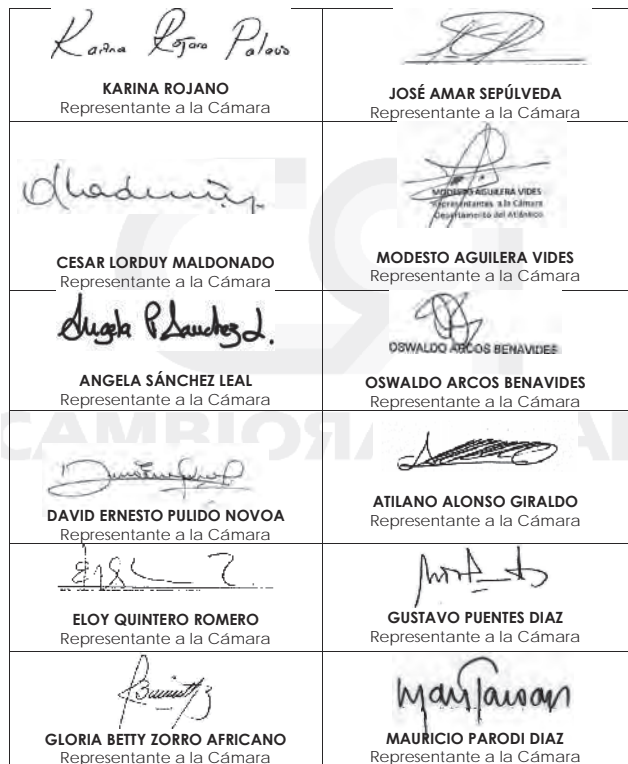 Karina Rojano Palacio
KARINA ROJANO
Representante a la Cámara
JOSÉ AMAR SEPÚLVEDA
Representante a la Cámara
CESAR LORDUY MALDONADO
Representante a la Cámara
MODESTO AGUILERA VIDES
Representantes a la Cámara
Departamento del Atlántico
MODESTO AGUILERA VIDES
Representante a la Cámara
Angela P Sanchez L.
ANGELA SÁNCHEZ LEAL
Representante a la Cámara
OSWALDO ARCOS BENAVIDES
OSWALDO ARCOS BENAVIDES
Representante a la Cámara
DAVID ERNESTO PULIDO NOVOA
Representante a la Cámara
ATILANO ALONSO GIRALDO
Representante a la Cámara
ELOY QUINTERO ROMERO
Representante a la Cámara
GUSTAVO PUENTES DIAZ
Representante a la Cámara
GLORIA BETTY ZORRO AFRICANO
Representante a la Cámara
MAURICIO PARODI DIAZ
Representante a la Cámara